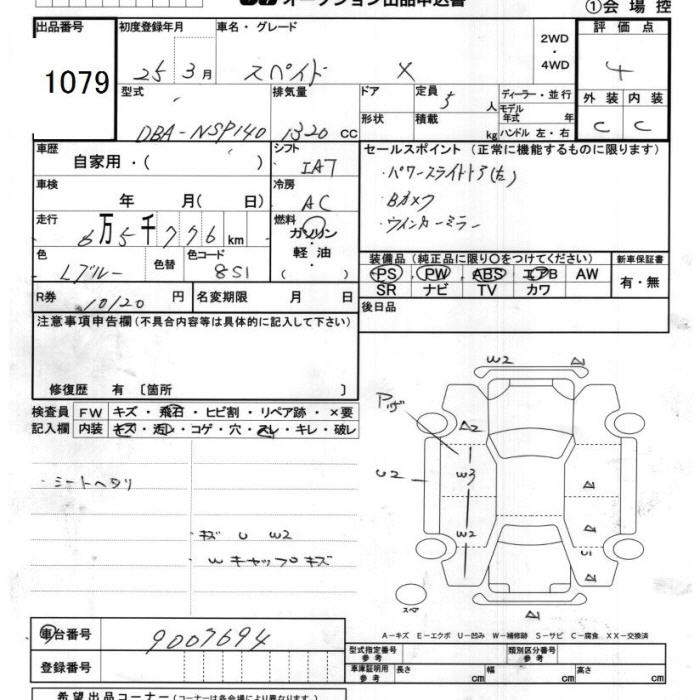 オークション出品申込書
①会場控
出品番号 初度登録年月 車名・グレード 2WD ・ 4WD 評価点
1079 25 3月 スペイド X 4
型式 排気量 ドア 定員 5人 ディーラー・並行 外装 内装
DBA-NSP140 1320 CC 形状 積載 kg モデル年式 年 ハンドル 左・右 C C
車歴 シフト セールスポイント(正常に機能するものに限ります)
自家用・( ) IA7 ・パワースライドドア(左)
車検 冷房 ・Bカメラ
年 月( 日) AC ・ウインカーミラー
走行 燃料
6万5千776km ガソリン・軽油・( )
色 色替 色コード 装備品(純正品に限り○をつけてください) 新車保証書
Lブルー 8S1 PS PW ABS エアB AW 有・無
SR ナビ TV カワ
R券 10120 円 名変期限 月 日 後日品
注意事項申告欄(不具合内容等は具体的に記入して下さい)
修復歴 有〔箇所 〕
検査員 FW キズ・飛石・ヒビ割・リペア跡・×要
記入欄 内装 キズ・汚レ・コゲ・穴・スレ・キレ・破レ
・シートヘタリ
キズ U W2
Wキャップキズ
W2 A1
A2
U2 W3 A1
W2 A1
U1
A1
A1
スペア
A-キズ E-エクボ U-凹み W-補修跡 S-サビ C-腐食 XX-交換済
車台番号 9007694
型式指定番号 参考 類別区分番号 参考
登録番号 車庫証明用 参考 長さ cm 幅 cm 高さ cm
希望出品コーナー(コーナーは各会場により異なります。)